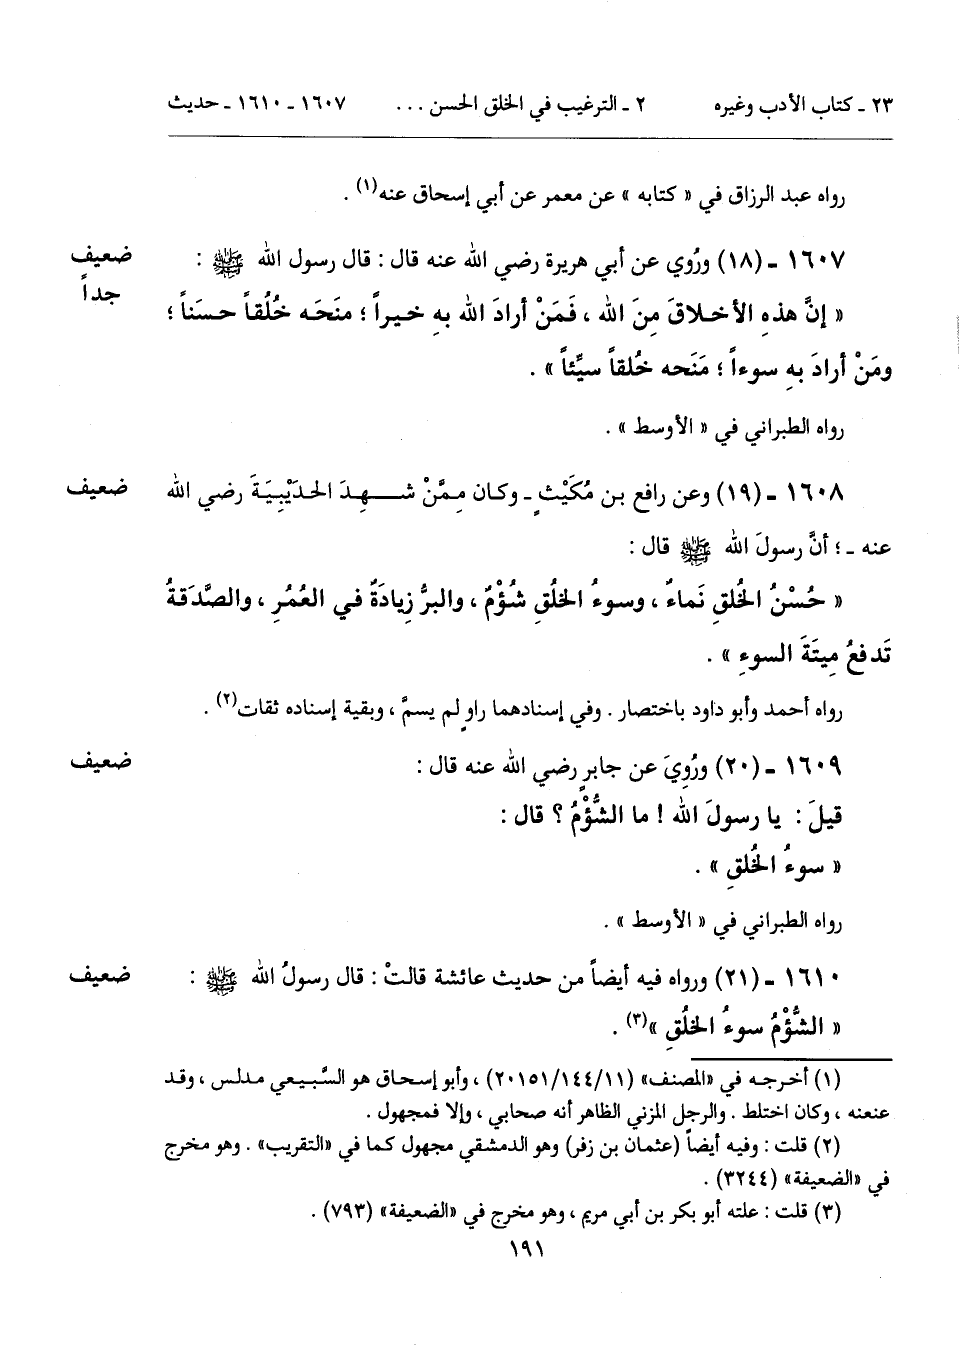 ٢٣ ـ كتاب الأدب وغيره ٢ ـ الترغيب في الخلق الحسن ... ١٦٠٧ ـ ١٦١٠ ـ حديث
رواه عبد الرزاق في « كتابه » عن معمر عن أبي إسحاق عنه(١) .
١٦٠٧ ـ (١٨) ورُوي عن أبي هريرة رضي الله عنه قال : قال رسول الله ﷺ : ضعيف
جداً
« إنَّ هذهِ الأخلاقَ مِنَ الله ، فَمَنْ أرادَ الله بهِ خيراً ؛ منَحَه خُلُقاً حسَناً ؛
ومَنْ أرادَ بهِ سوءاً ؛ مَنَحه خُلقاً سيِّئاً » .
رواه الطبراني في « الأوسط » .
١٦٠٨ ـ (١٩) وعن رافع بن مُكَيْثٍ ـ وكان مِمَّنْ شهِدَ الحدَيْبِيَةَ رضي الله ضعيف
عنه ـ ؛ أنَّ رسولَ الله ﷺ قال :
« حُسْنُ الخُلقِ نَماءٌ ، وسوءُ الخلُقِ شُؤْمٌ ، والبرُّ زِيادَةٌ في العُمُرِ ، والصَّدَقةُ
تَدفعُ مِيتَةَ السوءِ » .
رواه أحمد وأبو داود باختصار . وفي إسنادهما راوٍ لم يسمَّ ، وبقية إسناده ثقات(٢) .
١٦٠٩ ـ (٢٠) ورُوِيَ عن جابرٍ رضي الله عنه قال : ضعيف
قيلَ : يا رسولَ الله ! ما الشُّؤْمُ ؟ قال :
« سوءُ الخُلقِ » .
رواه الطبراني في « الأوسط » .
١٦١٠ ـ (٢١) ورواه فيه أيضاً من حديث عائشة قالتْ : قال رسولُ الله ﷺ : ضعيف
« الشُّؤْمُ سوءُ الخُلُقِ »(٣) .
(١) أخرجه في «المصنف» (١١/ ١٤٤/ ٢٠١٥١) ، وأبو إسحاق هو السَّبيعي مدلس ، وقد
عنعنه ، وكان اختلط . والرجل المزني الظاهر أنه صحابي ، وإلا فمجهول .
(٢) قلت : وفيه أيضاً (عثمان بن زفر) وهو الدمشقي مجهول كما في «التقريب» . وهو مخرج
في «الضعيفة» (٣٢٤٤) .
(٣) قلت : علته أبو بكر بن أبي مريم ، وهو مخرج في «الضعيفة» (٧٩٣) .
١٩١